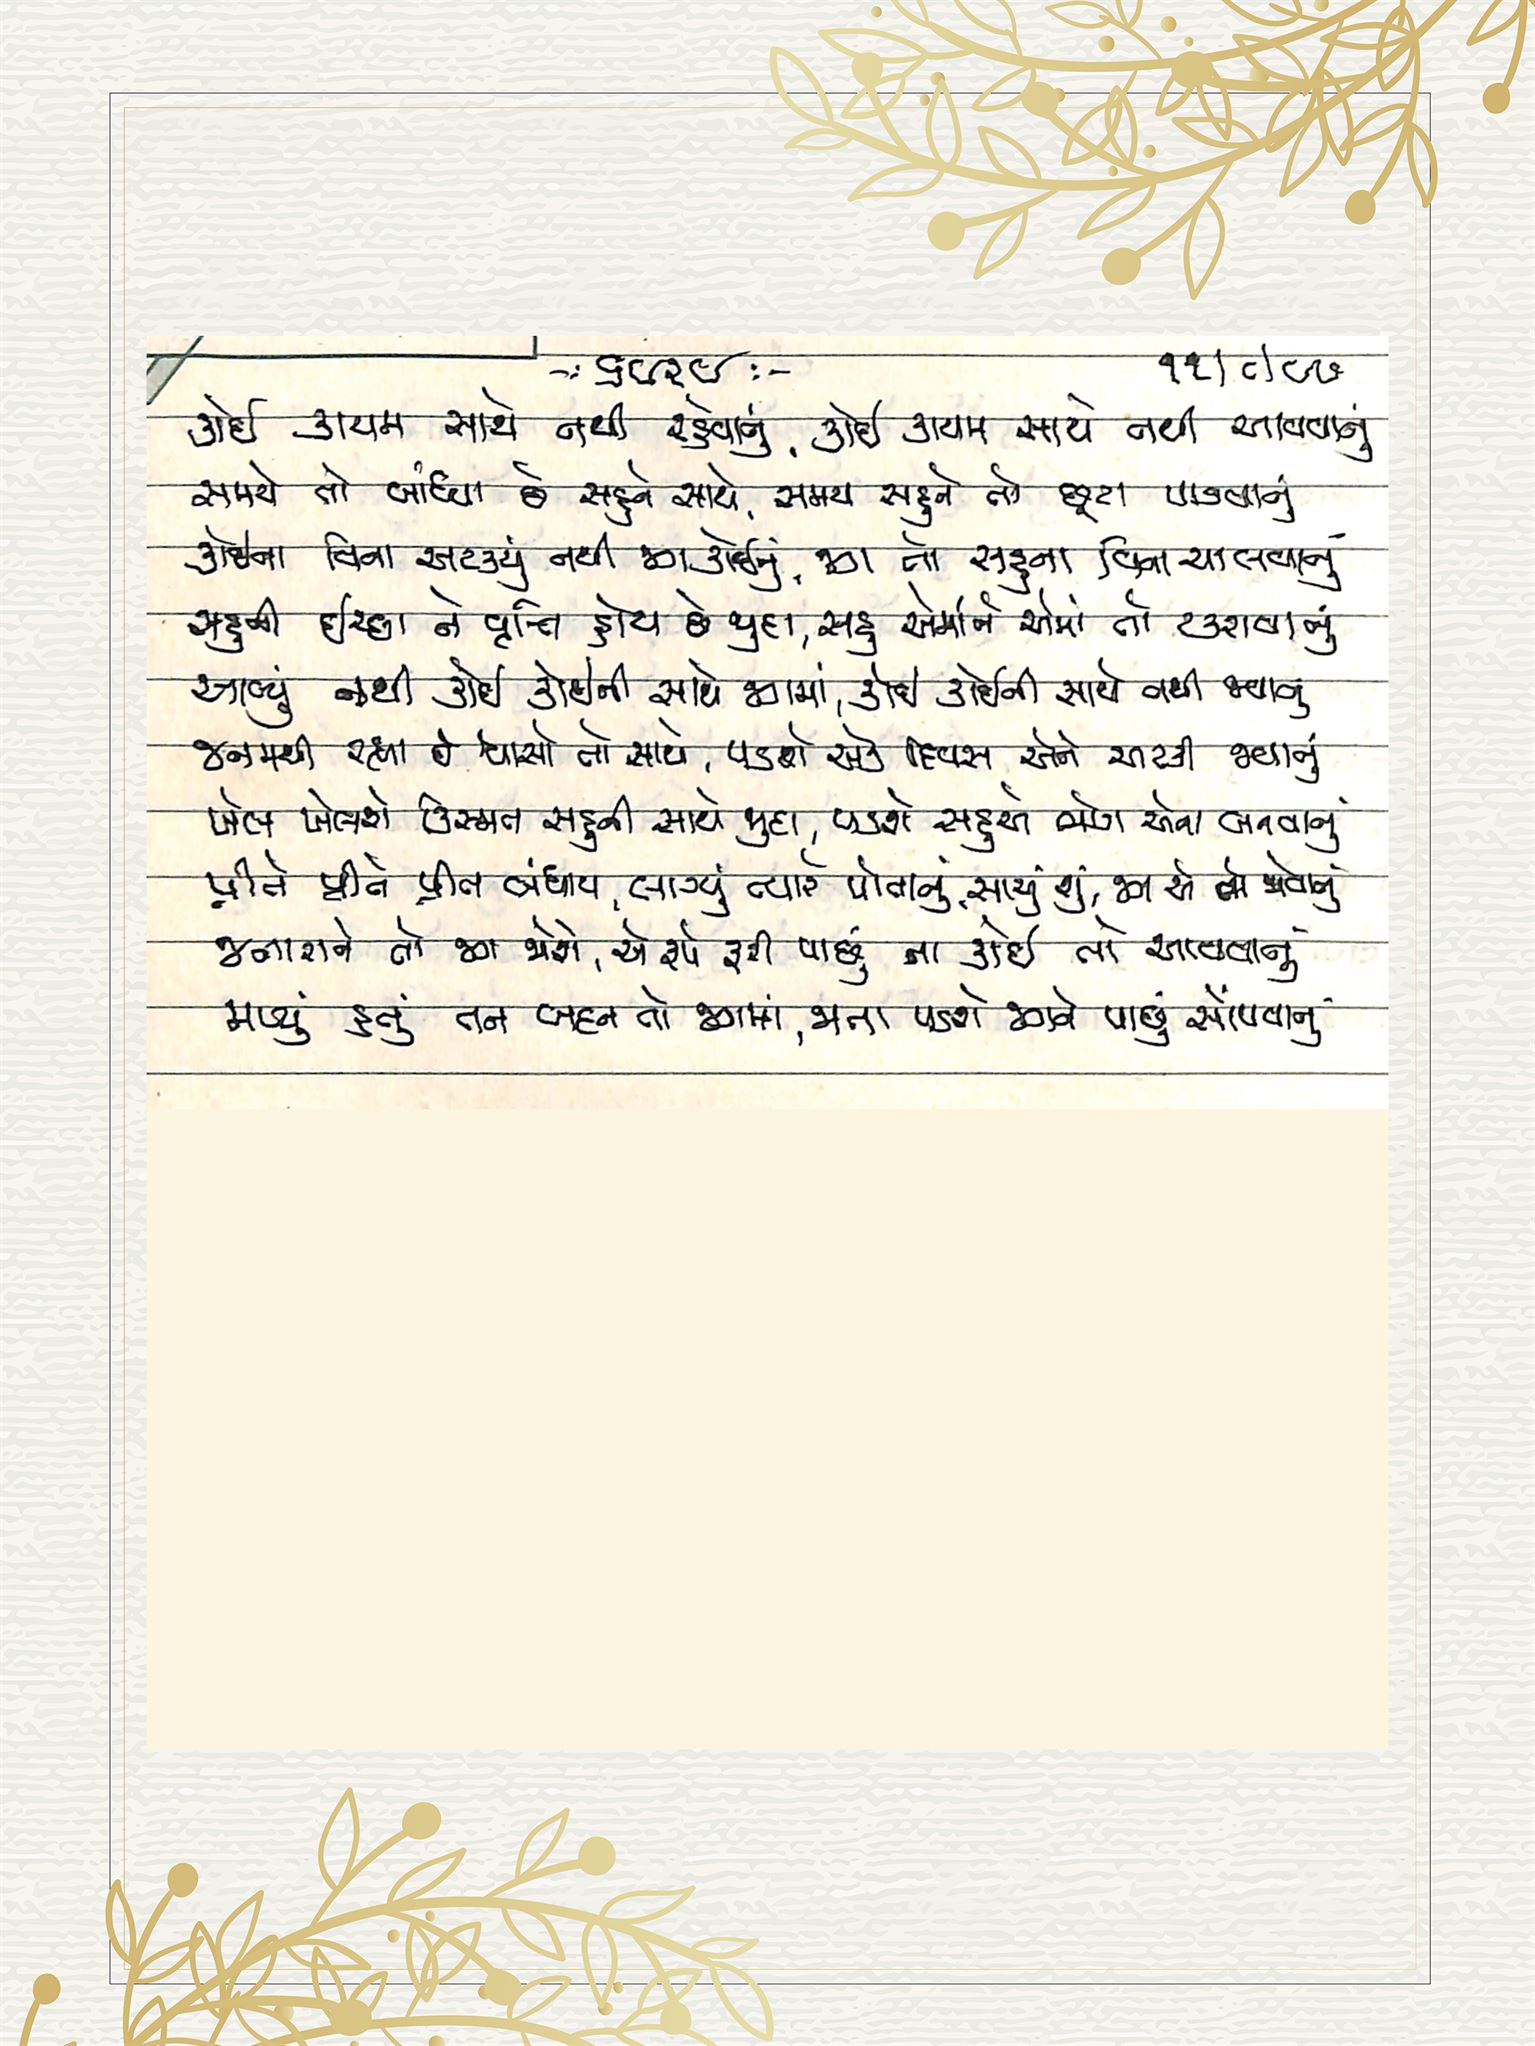 -: ૬૮૨૯ :- ૧૧/૮/૯૭
કોઈ કાયમ સાથે નથી રહેવાનું, કોઈ કાયમ સાથે નથી આવવાનું
સમયે તો બાંધ્યા છે સહુને સાથે, સમય સહુને તો છૂટા પાડવાનું
કોઈના વિના અટક્યું નથી જગ કોઈનું, જગ તો સહુના વિના ચાલવાનું
સહુની ઈચ્છા ને વૃત્તિ હોય છે જુદા, સહુ એમાંને એમાં તો ટકરાવાનું
આવ્યું નથી કોઈ કોઈની સાથે જગમાં, કોઈ કોઈની સાથે નથી જવાનું
જનમથી રહ્યા છે શ્વાસો તો સાથે, પડશે એક દિવસ એને અટકી જવાનું
ખેલ ખેલશે કિસ્મત સહુની સાથે જુદા, પડશે સહુએ એના બનવાનું
પ્રીતે પ્રીતે પ્રીત બંધાય, લાગ્યું ત્યારે પોતાનું, સાચું શું, જગ એ તો જોવાનું
જનારાને તો જગ જોશે, એ રૂપે ફરી પાછું ના કોઈ તો આવવાનું
મળ્યું હતું તન બદન તો જગમાં, જાતા પડશે જગને પાછું સોંપવાનું